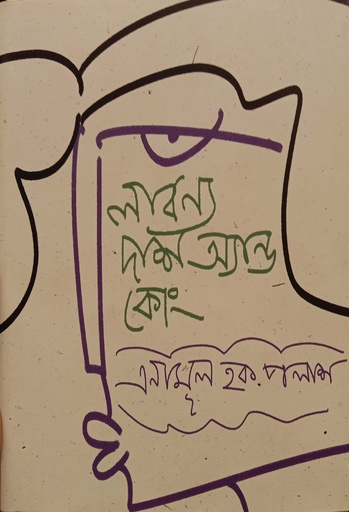 লাবণ্য
দাশ অ্যান্ড
কোং
এনামূল হক পলাশ